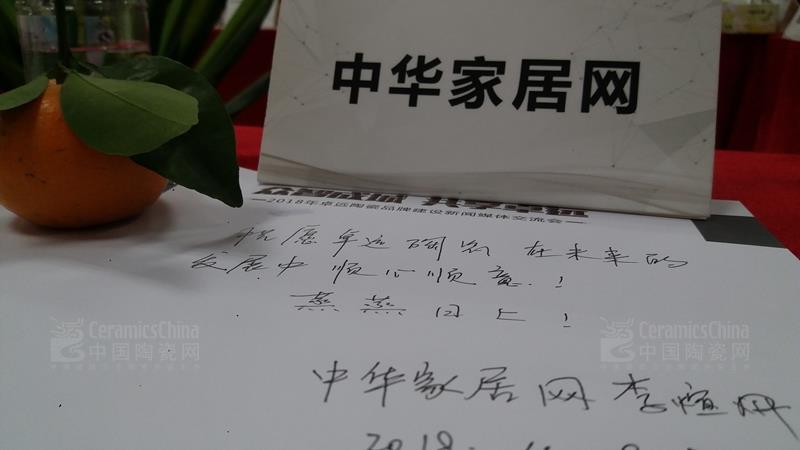 中华家居网
—2018年卓远陶瓷品牌建设新闻媒体交流会—
祝愿卓远陶瓷在未来的
发展中顺心顺意!
蒸蒸日上!
CeramicsChina
中国陶瓷网
CeramicsChina
中国陶瓷网
中华家居网 李恒
2018.